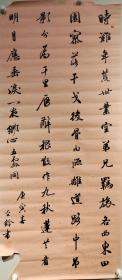 時難年荒世業空弟兄羈旅各西東田
園寥落干戈後骨肉流離道路中弔
影分為千里雁辭根散作九秋蓬共看
明月應垂淚一夜鄉心五處同
庚寅春